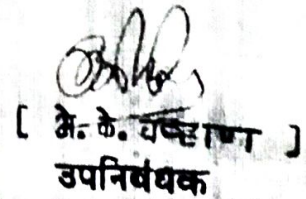 [ मे. के. चव्हाण ]
उपनिबंधक